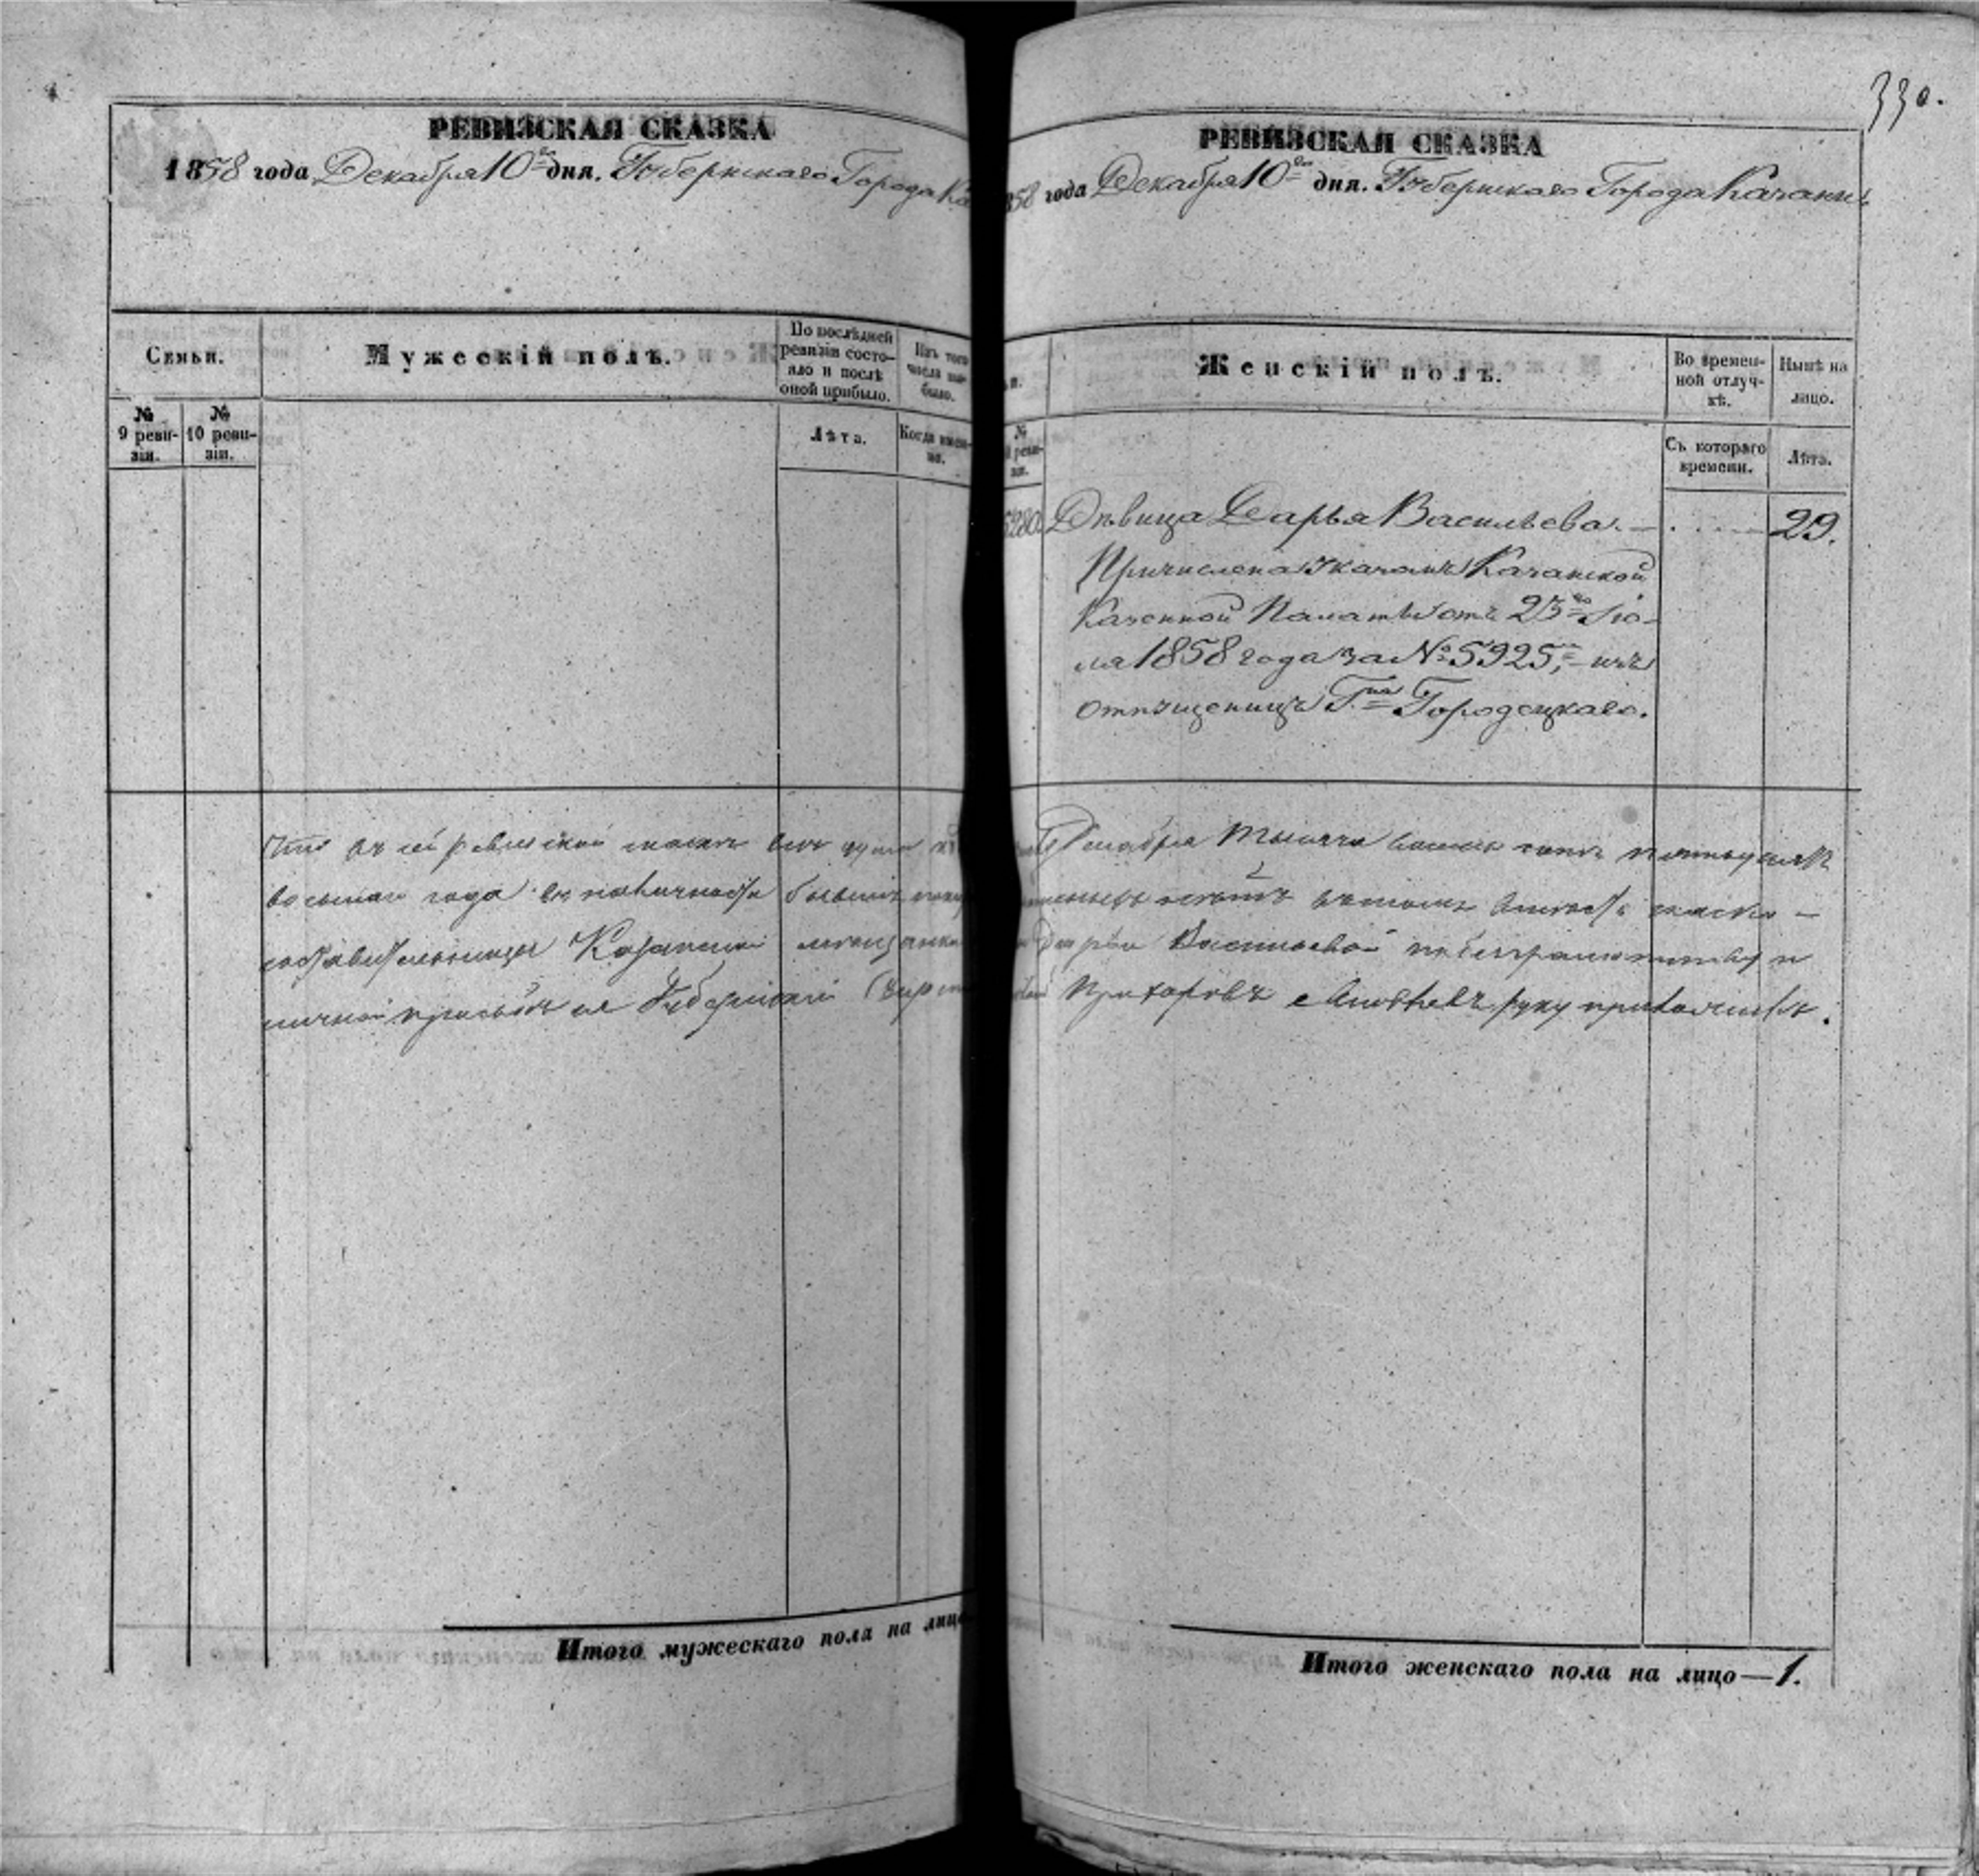 330.
РЕВИЗСКАЯ СКАЗКА
1858 года Декабря 10го дня. Губернскаго Города Ка
Семьи.
Мужескій полъ.
По послѣдней ревизіи состояло и послѣ оной прибыло.
Изъ того числа выбыло.
№ 9 ревизіи.
№ 10 ревизіи.
Лѣта.
Когда именно.
Что въ сей ревизской сказкѣ всѣ души
восьмаго года въ наличности бывшіе
составительницы Казанской мѣщанки
личной просьбѣ ея Губернскій
Итого мужескаго пола на лицо
РЕВИЗСКАЯ СКАЗКА
858 года Декабря 10го дня. Губернскаго Города Казани
Женскій полъ.
Во временной отлучкѣ.
Нынѣ на лицо.
№
Съ котораго времени.
Лѣта.
5280. Дѣвица Дарья Васильева. — . . . . 29.
Причислена указомъ Казанской
Казенной Палаты отъ 23го Iю-
ля 1858 года за № 5925, изъ
отпущеницъ Гна Городецкаго.
Декабря тысяча восемь сотъ пятьдесятъ
Дарьи Васильевой по безграмотству и
Прохоровъ руку приложилъ.
Итого женскаго пола на лицо — 1.